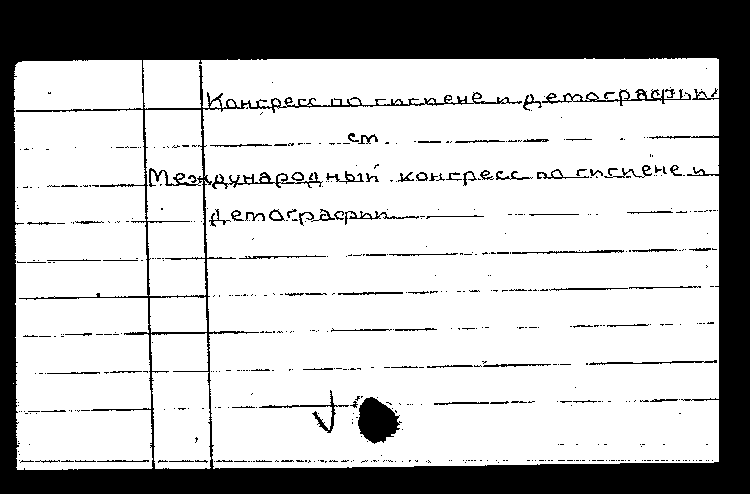 Конгресс по гигиене и демографии
см.
Международный конгресс по гигиене и
демографии